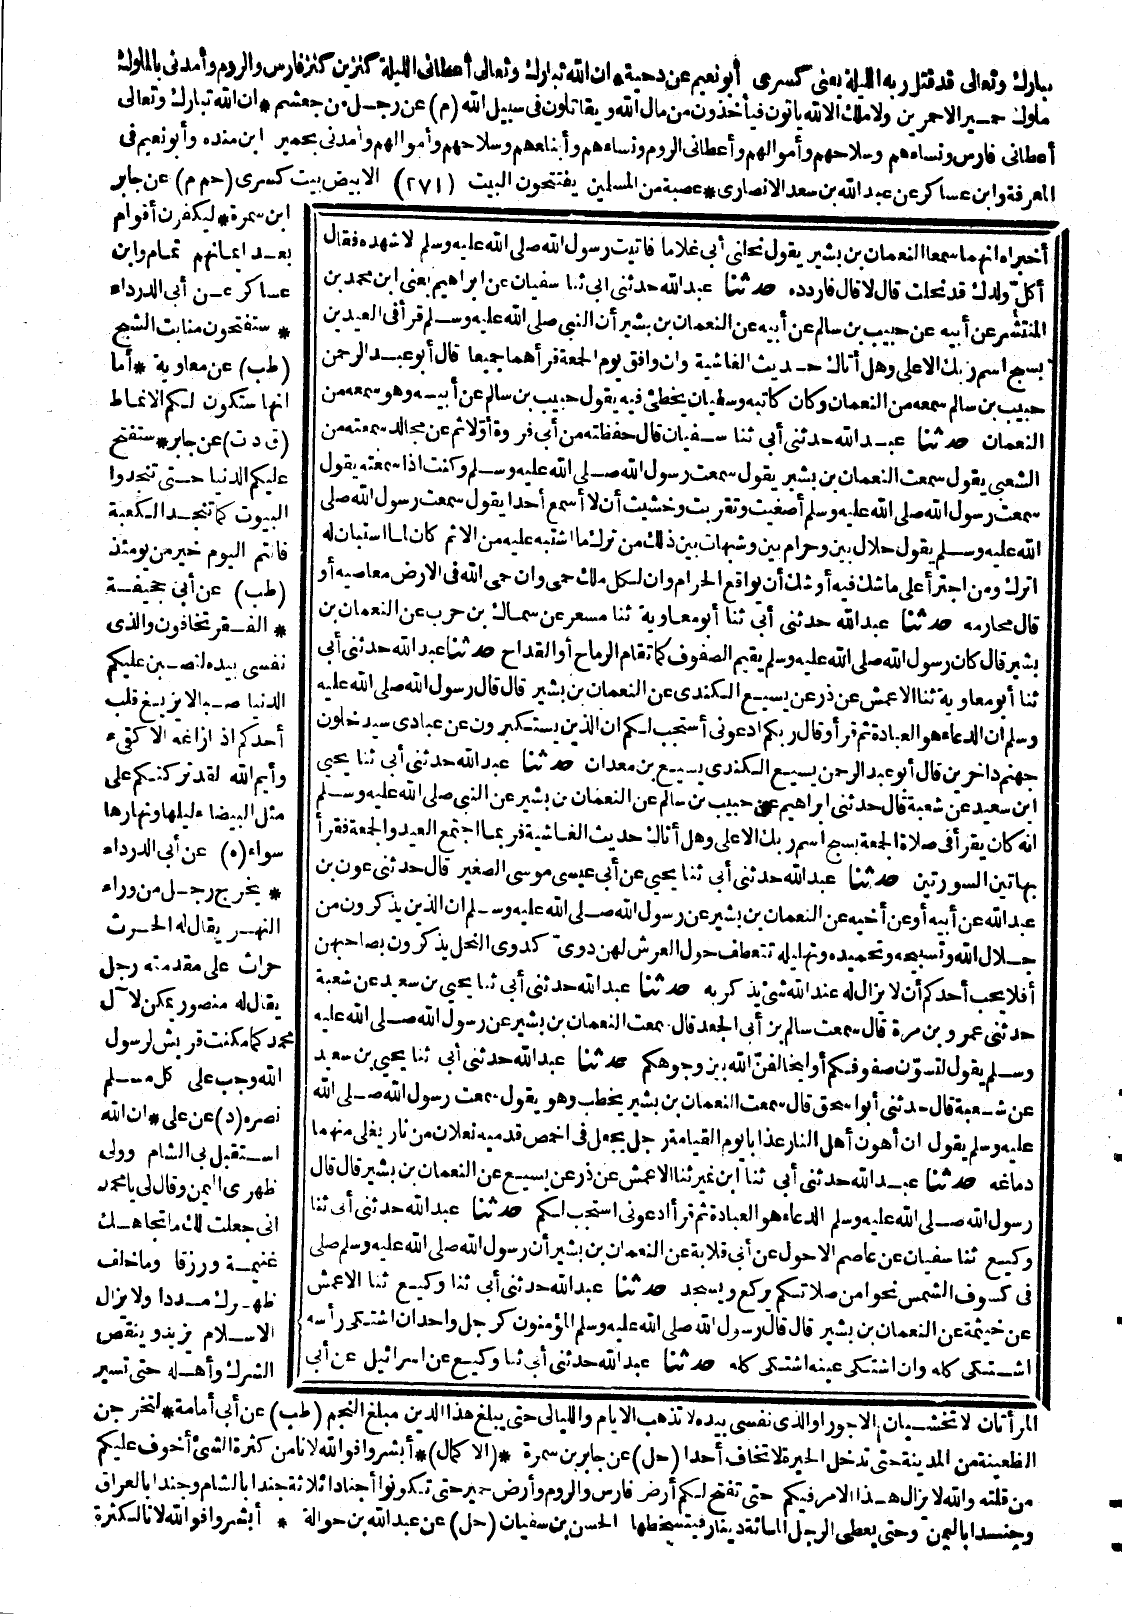 تبارك وتعالى قد قتل ربه الليلة يعنى كسرى أبو نعيم عن دحية * ان الله تبارك وتعالى أعطانى الليلة كنزين كنز فارس والروم وأمدنى بالملوك
ملوك حمير الاحمرين ولا ملك الا لله يأتون فيأخذون من مال الله ويقاتلون فى سبيل الله (م) عن رجل من خثعم * ان الله تبارك وتعالى
أعطانى فارس ونساءهم وسلاحهم وأموالهم وأعطانى الروم ونساءهم وأبناءهم وسلاحهم وأموالهم وأمدنى بحمير ابن منده وأبو نعيم فى
المعرفة وابن عساكر عن عبد الله بن سعد الانصارى * عصبة من المسلمين يفتتحون البيت (٢٧١) الابيض بيت كسرى (حم م) عن جابر
ابن سمرة * ليكفرن أقوام
بعد ايمانهم تمام وابن
عساكر عن أبى الدرداء
* ستفتحون منابت الشيح
(طب) عن معاوية * أما
انها ستكون لكم الانماط
(ق د ت) عن جابر * ستفتح
عليكم الدنيا حتى تنجدوا
البيوت كما تنجد الكعبة
فانتم اليوم خير من يومئذ
(طب) عن أبى جحيفة
* الفقر تخافون والذى
نفسى بيده لتصبن عليكم
الدنيا صبا لا يزيغ قلب
أحدكم اذ ازاغه الا كفىء
وأيم الله لقد تركتكم على
مثل البيضاء ليلها ونهارها
سواء (ه) عن أبى الدرداء
* يخرج رجل من وراء
النهر يقال له الحرث
حراث على مقدمته رجل
يقال له منصور يمكن لآل
محمد كما مكنت قريش لرسول
الله وجب على كل مسلم
نصره (د) عن على * ان الله
استقبل بى الشام وولى
ظهرى اليمن وقال لى يا محمد
انى جعلت لك ما تجاهك
غنيمة ورزقا وما خلف
ظهرك مددا ولا يزال
الاسلام يزيد وينقص
الشرك وأهله حتى تسير
أخبراه انهما سمعا النعمان بن بشير يقول نحلنى أبى غلاما فاتيت رسول الله صلى الله عليه وسلم لاشهده فقال
أكل ولدك قد نحلت قال لا قال فاردده حدثنا عبد الله حدثنى ابى ثنا سفيان عن ابراهيم يعنى ابن محمد بن
المنتشر عن أبيه عن حبيب بن سالم عن أبيه عن النعمان بن بشير أن النبى صلى الله عليه وسلم قرأ فى العيدين
بسبح اسم ربك الاعلى وهل أتاك حديث الغاشية وان وافق يوم الجمعة قرأهما جميعا قال أبو عبد الرحمن
حبيب بن سالم سمعه من النعمان وكان كاتبه وسفيان يخطئ فيه يقول حبيب بن سالم عن أبيه وهو سمعه من
النعمان حدثنا عبد الله حدثنى أبى ثنا سفيان قال حفظته من أبى فروة أولا ثم عن مجالد سمعته من
الشعبى يقول سمعت النعمان بن بشير يقول سمعت رسول الله صلى الله عليه وسلم وكنت اذا سمعته يقول
سمعت رسول الله صلى الله عليه وسلم أصغيت وتقربت وخشيت أن لا أسمع أحدا يقول سمعت رسول الله صلى
الله عليه وسلم يقول حلال بين وحرام بين وشبهات بين ذلك من ترك ما اشتبه عليه من الاثم كان لما استبان له
اترك ومن اجترأ على ما شك فيه أوشك أن يواقع الحرام وان لكل ملك حمى وان حمى الله فى الارض معاصيه أو
قال محارمه حدثنا عبد الله حدثنى أبى ثنا أبو معاوية ثنا مسعر عن سماك بن حرب عن النعمان بن
بشير قال كان رسول الله صلى الله عليه وسلم يقيم الصفوف كما تقام الرماح أو القداح حدثنا عبد الله حدثنى أبى
ثنا أبو معاوية ثنا الاعمش عن ذر عن يسيع الكندى عن النعمان بن بشير قال قال رسول الله صلى الله عليه
وسلم ان الدعاء هو العبادة ثم قرأ وقال ربكم ادعونى أستجب لكم ان الذين يستكبرون عن عبادتى سيدخلون
جهنم داخرين قال أبو عبد الرحمن يسيع الكندى يسيع بن معدان حدثنا عبد الله حدثنى أبى ثنا يحيى
ابن سعيد عن شعبة قال حدثنى ابراهيم عن حبيب بن سالم عن النعمان بن بشير عن النبى صلى الله عليه وسلم
انه كان يقرأ فى صلاة الجمعة بسبح اسم ربك الاعلى وهل أتاك حديث الغاشية فربما اجتمع العيد والجمعة فقرأ
بهاتين السورتين حدثنا عبد الله حدثنى أبى ثنا يحيى عن أبى عيسى موسى الصغير قال حدثنى عون بن
عبد الله عن أبيه أو عن أخيه عن النعمان بن بشير عن رسول الله صلى الله عليه وسلم ان الذين يذكرون من
جلال الله وتسبيحه وتحميده وتهليله تتعطف حول العرش لهن دوى كدوى النحل يذكرون بصاحبهن
أفلا يحب أحدكم أن لا يزال له عند الله شئ يذكر به حدثنا عبد الله حدثنى أبى ثنا يحيى بن سعيد عن شعبة
حدثنى عمرو بن مرة قال سمعت سالم بن أبى الجعد قال سمعت النعمان بن بشير عن رسول الله صلى الله عليه
وسلم يقول لتسون صفوفكم أو ليخالفن الله بين وجوهكم حدثنا عبد الله حدثنى أبى ثنا يحيى بن سعيد
عن شعبة قال حدثنى أبو اسحق قال سمعت النعمان بن بشير يخطب وهو يقول سمعت رسول الله صلى الله
عليه وسلم يقول ان أهون أهل النار عذابا يوم القيامة رجل يجعل فى اخمص قدميه نعلان من نار يغلى منهما
دماغه حدثنا عبد الله حدثنى أبى ثنا ابن نمير ثنا الاعمش عن ذر عن يسيع عن النعمان بن بشير قال قال
رسول الله صلى الله عليه وسلم الدعاء هو العبادة ثم قرأ ادعونى استجب لكم حدثنا عبد الله حدثنى أبى ثنا
وكيع ثنا سفيان عن عاصم الاحول عن أبى قلابة عن النعمان بن بشير أن رسول الله صلى الله عليه وسلم صلى
فى كسوف الشمس نحوا من صلاتكم يركع ويسجد حدثنا عبد الله حدثنى أبى ثنا وكيع ثنا الاعمش
عن خيثمة عن النعمان بن بشير قال قال رسول الله صلى الله عليه وسلم المؤمنون كرجل واحد ان اشتكى رأسه
اشتكى كله وان اشتكى عينه اشتكى كله حدثنا عبد الله حدثنى أبى ثنا وكيع عن اسرائيل عن أبى
المرأتان لا تخشيان الا جورا والذى نفسى بيده لا تذهب الايام والليالى حتى يبلغ هذا الدين مبلغ النجم (طب) عن أبى أمامة * لتخرجن
الظعينة من المدينة حتى تدخل الحيرة لا تخاف أحدا (حل) عن جابر بن سمرة * (الاكمال) * أبشروا فوالله لانا من كثرة الشئ أخوف عليكم
من قلته والله لا يزال هذا الامر فيكم حتى تفتح لكم أرض فارس والروم وأرض حمير حتى تكونوا أجنادا ثلاثة جندا بالشام وجندا بالعراق
وجندا باليمن وحتى يعطى الرجل المائة دينار فيتسخطها الحسن بن سفيان (حل) عن عبد الله بن حوالة * أبشروا فوالله لانا لكثرة